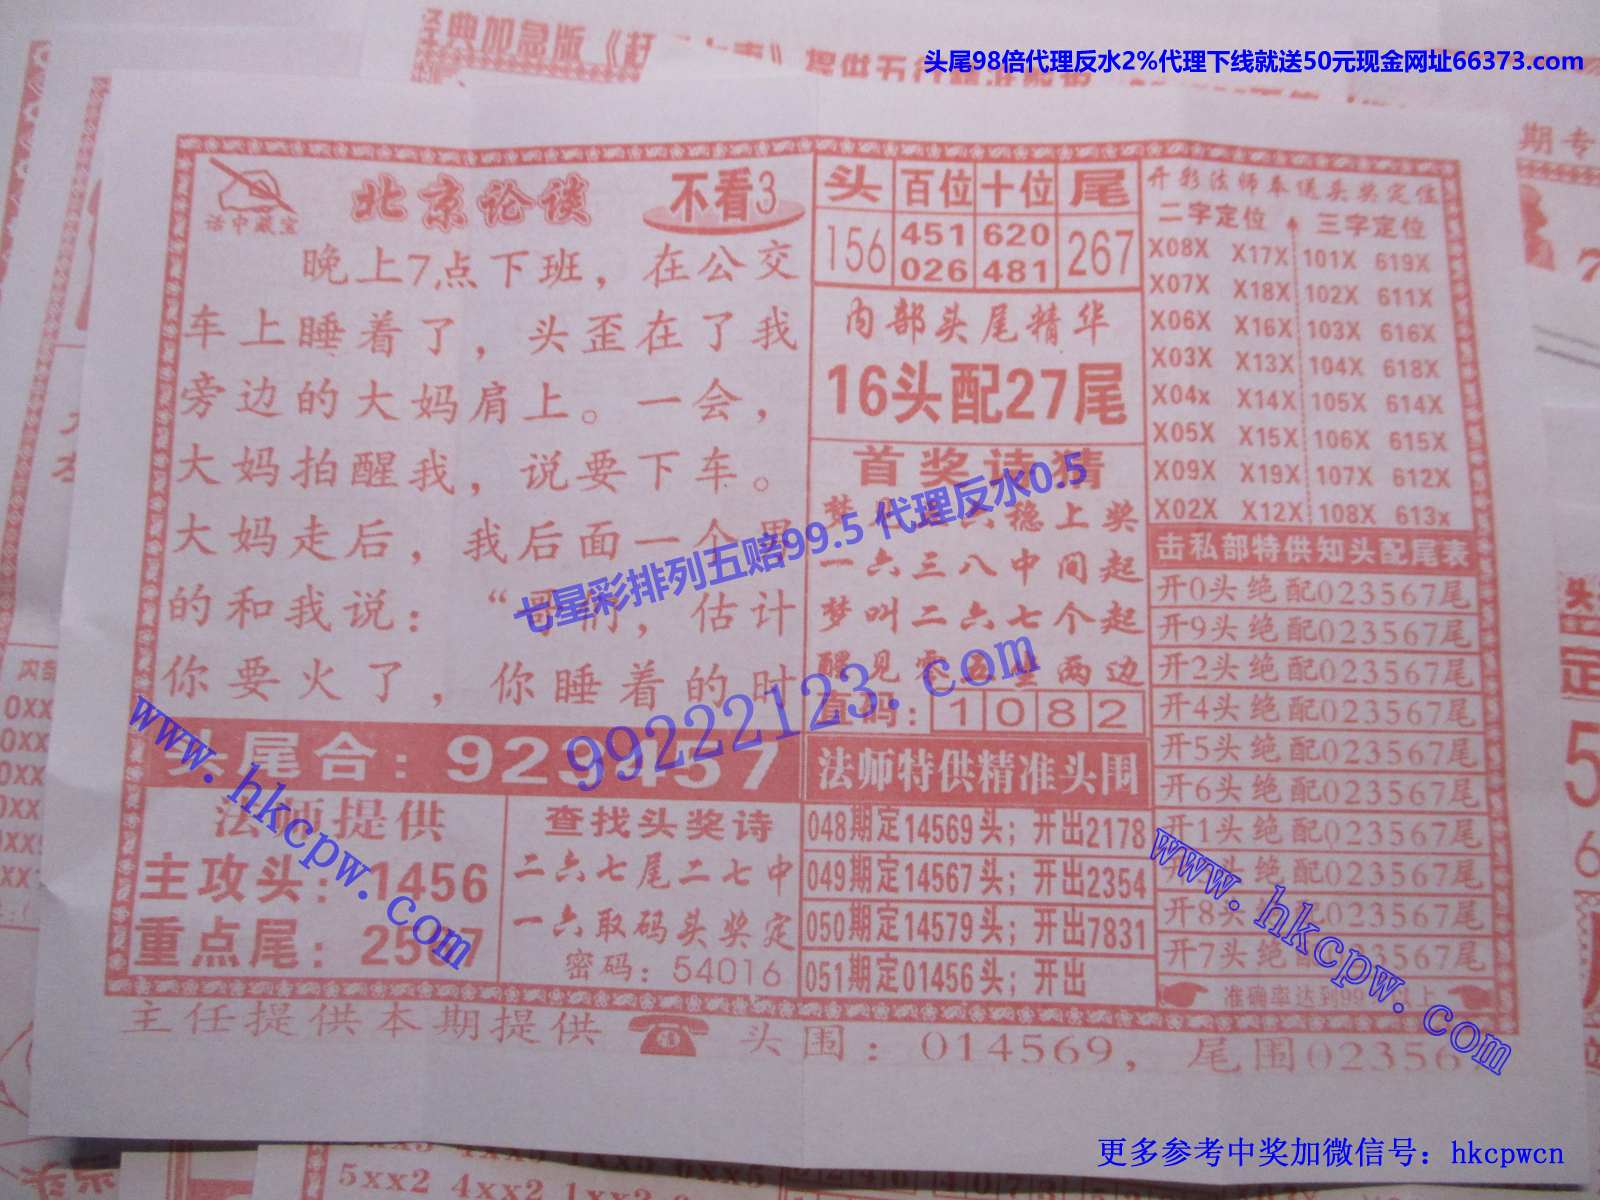 头尾98倍代理反水2%代理下线就送50元现金网址66373.com
经典加急版
提供五
期专
北京论谈
不看3
话中藏宝
晚上7点下班，在公交
车上睡着了，头歪在了我
旁边的大妈肩上。一会，
大妈拍醒我，说要下车。
大妈走后，我后面一个男
的和我说：“哥们，估计
你要火了，你睡着的时
头尾合：923457
法师提供
主攻头：1456
重点尾：2567
查找头奖诗
二六七尾二七中
一六取码头奖定
密码：54016
头 百位 十位 尾
156 451 620 267
026 481
内部头尾精华
16头配27尾
首奖诗猜
稳上奖
一六三八中间起
梦叫二六七个起
醒见零五坐两边
直码：1082
法师特供精准头围
048期定14569头；开出2178
049期定14567头；开出2354
050期定14579头；开出7831
051期定01456头；开出
开彩法师奉送头奖定位
二字定位 三字定位
X08X X17X 101X 619X
X07X X18X 102X 611X
X06X X16X 103X 616X
X03X X13X 104X 618X
X04x X14X 105X 614X
X05X X15X 106X 615X
X09X X19X 107X 612X
X02X X12X 108X 613x
击私部特供知头配尾表
开0头绝配023567尾
开9头绝配023567尾
开2头绝配023567尾
开4头绝配023567尾
开5头绝配023567尾
开6头绝配023567尾
开1头绝配023567尾
头绝配023567尾
开8头绝配023567尾
开7头绝配023567尾
准确率达到99 以上
主任提供本期提供 头围：014569，尾围023567
七星彩排列五赔99.5 代理反水0.5
99222123.com
www.hkcpw.com
www.hkcpw.com
5xx2 4xx2
更多参考中奖加微信号：hkcpwcn